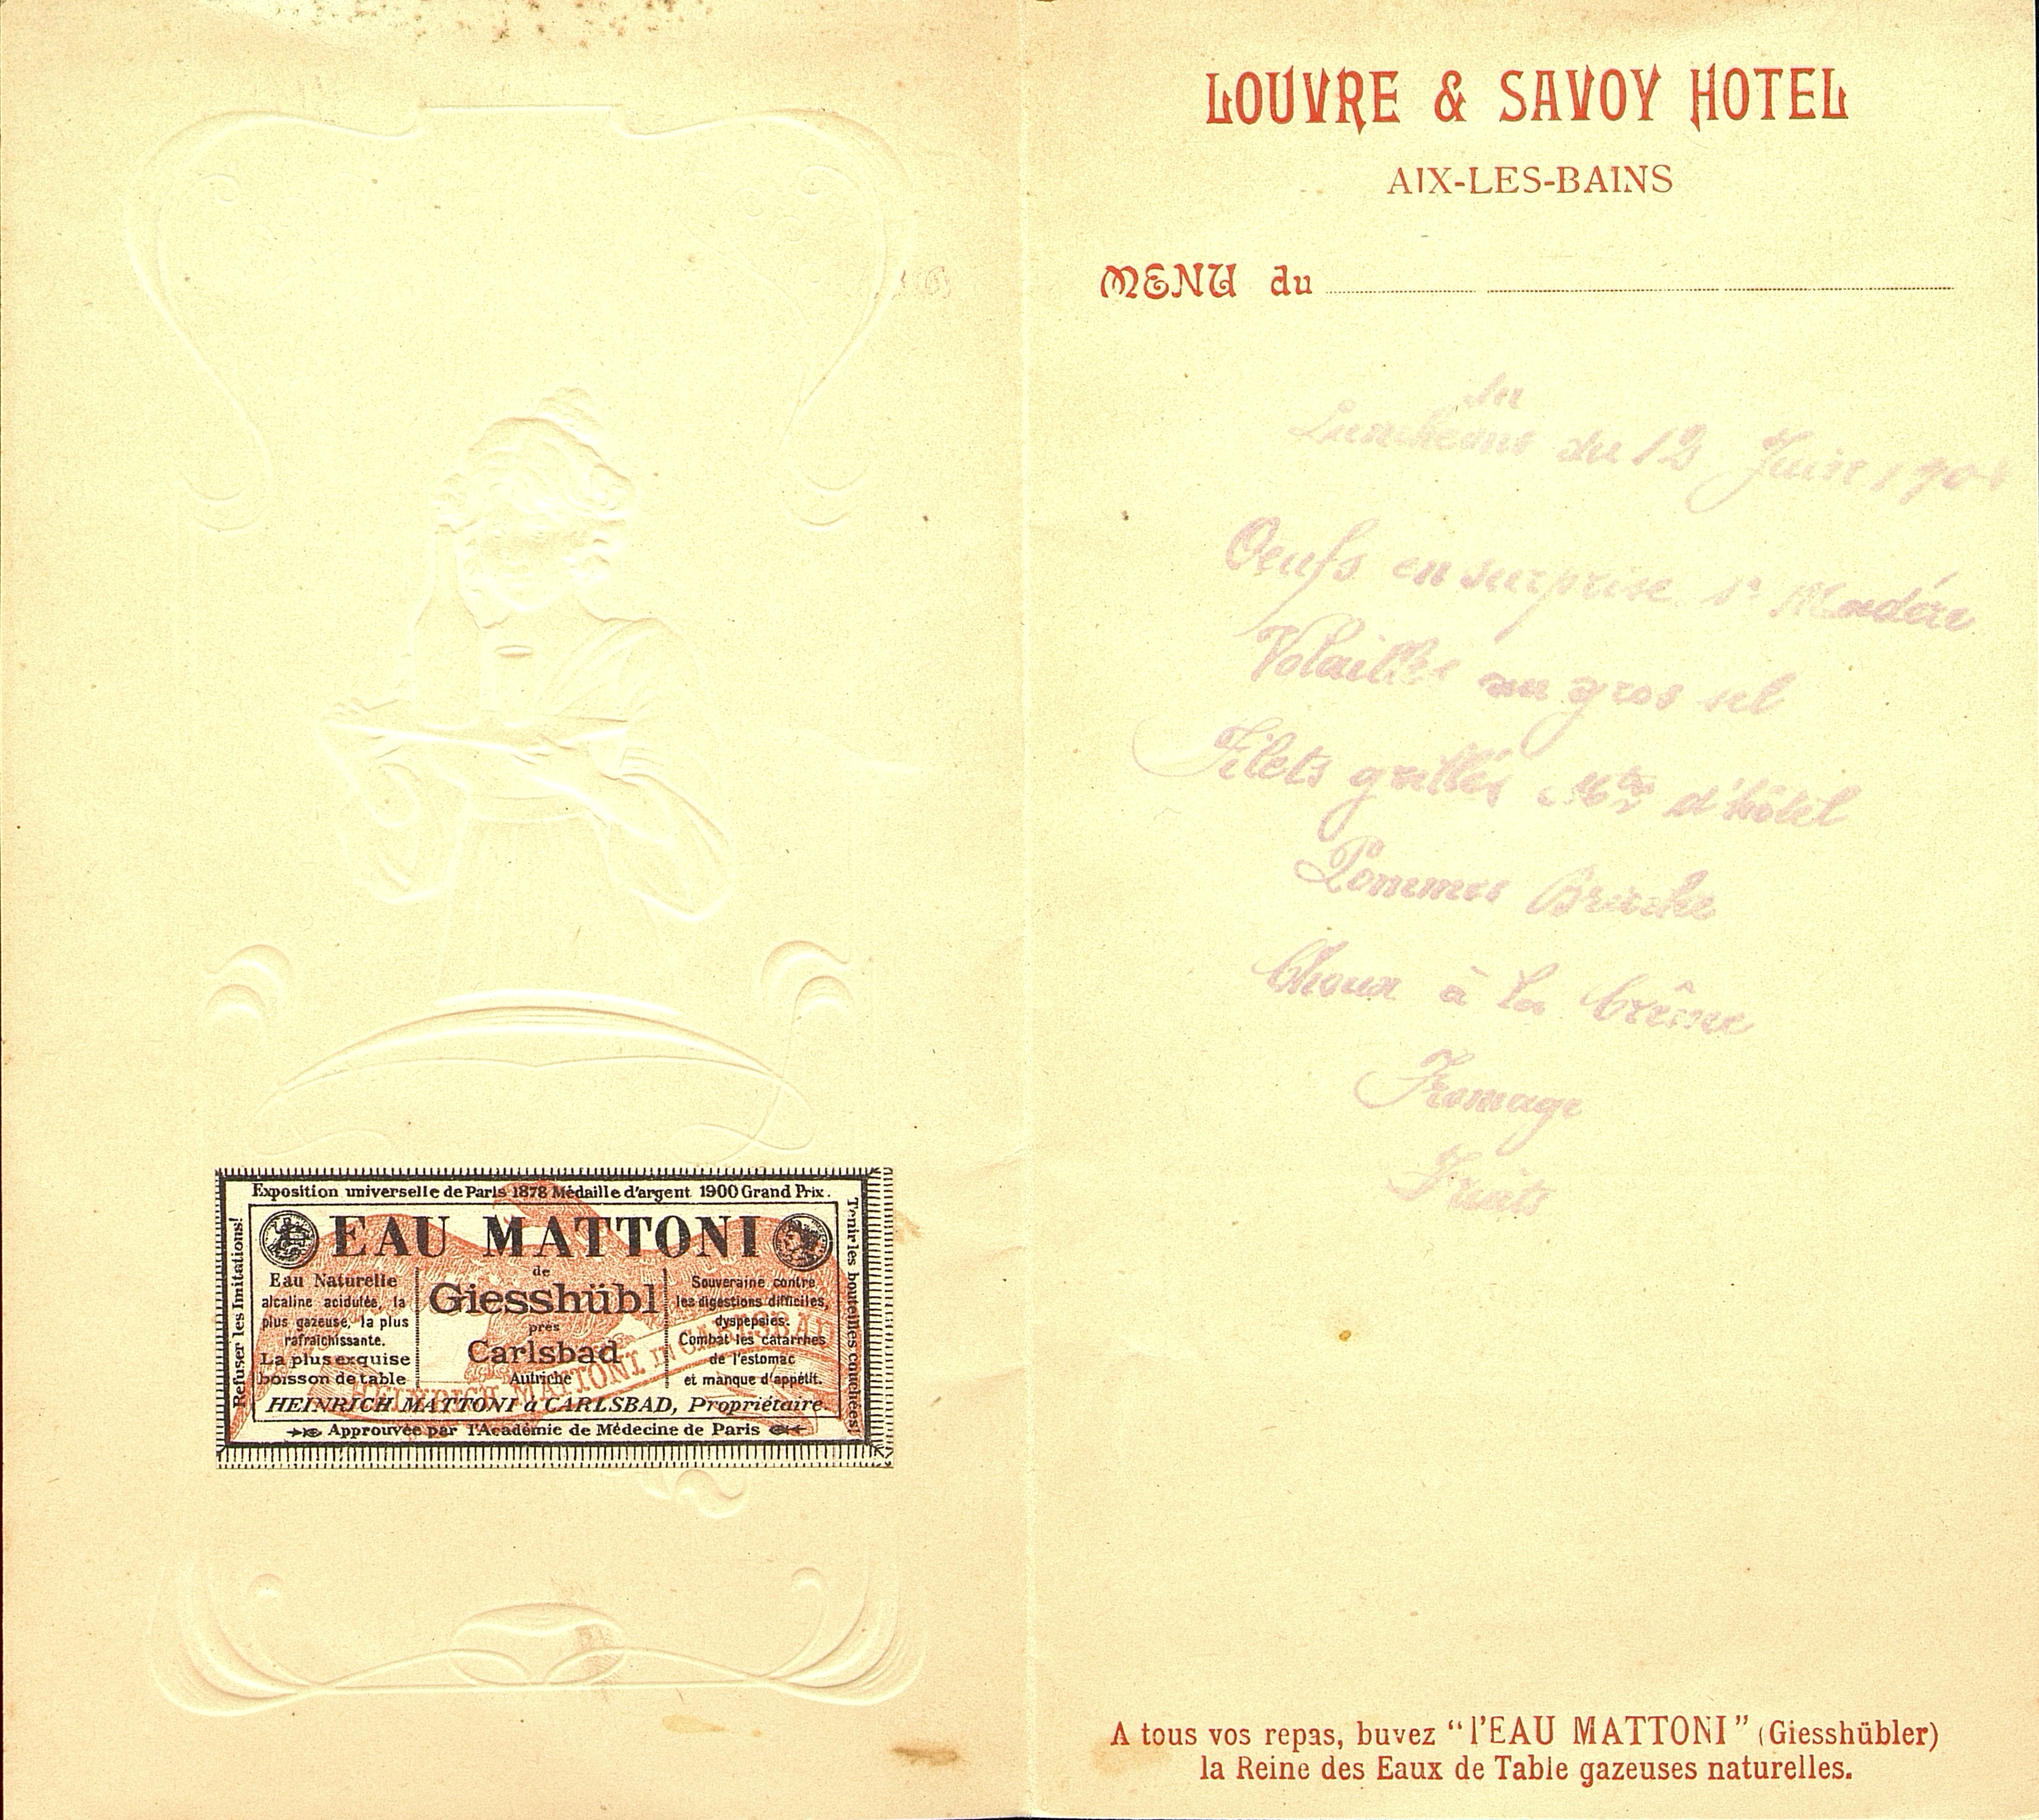 Exposition universelle de Paris 1878 Médaille d'argent 1900 Grand Prix.
Refuser les Imitations!
EAU MATTONI
Eau Naturelle
alcaline acidulée, la
plus gazeuse, la plus
rafraichissante.
La plus exquise
boisson de table
de
Giesshübl
près
Carlsbad
Autriche
Souveraine contre
les digestions difficiles,
dyspepsies.
Combat les catarrhes
de l'estomac
et manque d'appétit.
HEINRICH MATTONI in CARLSBAD
HEINRICH MATTONI à CARLSBAD, Propriétaire
Approuvée par l'Académie de Médecine de Paris
Tenir les bouteilles couchées!
LOUVRE & SAVOY HOTEL
AIX-LES-BAINS
MENU du
du
Luncheons du 12 Juin 190
Oeufs en surprise Madère
Volailles au gros sel
Filets grillés d'hôtel
Pommes
Choux à la Crême
Fromage
Fruits
A tous vos repas, buvez "l'EAU MATTONI" (Giesshübler)
la Reine des Eaux de Table gazeuses naturelles.